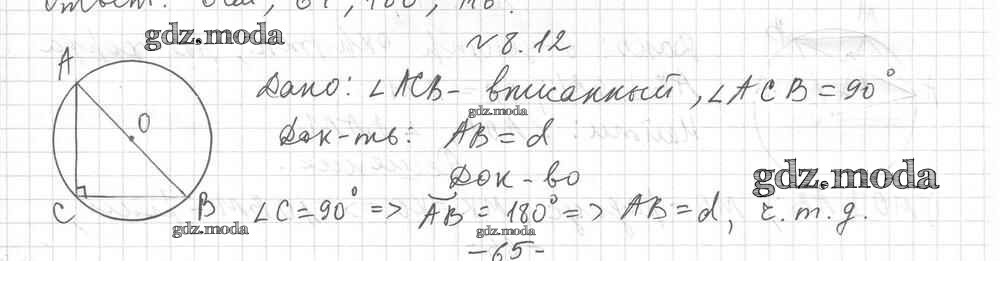 Ответ:
gdz.moda
N 8.12
A
O
C
B
Дано: ∠ACB - вписанный, ∠ACB = 90°
gdz.moda
Док-ть: AB = d
Док-во
gdz.moda
∠C = 90° => ◡AB = 180° => AB = d, ч.т.д.
gdz.moda
gdz.moda
-65-